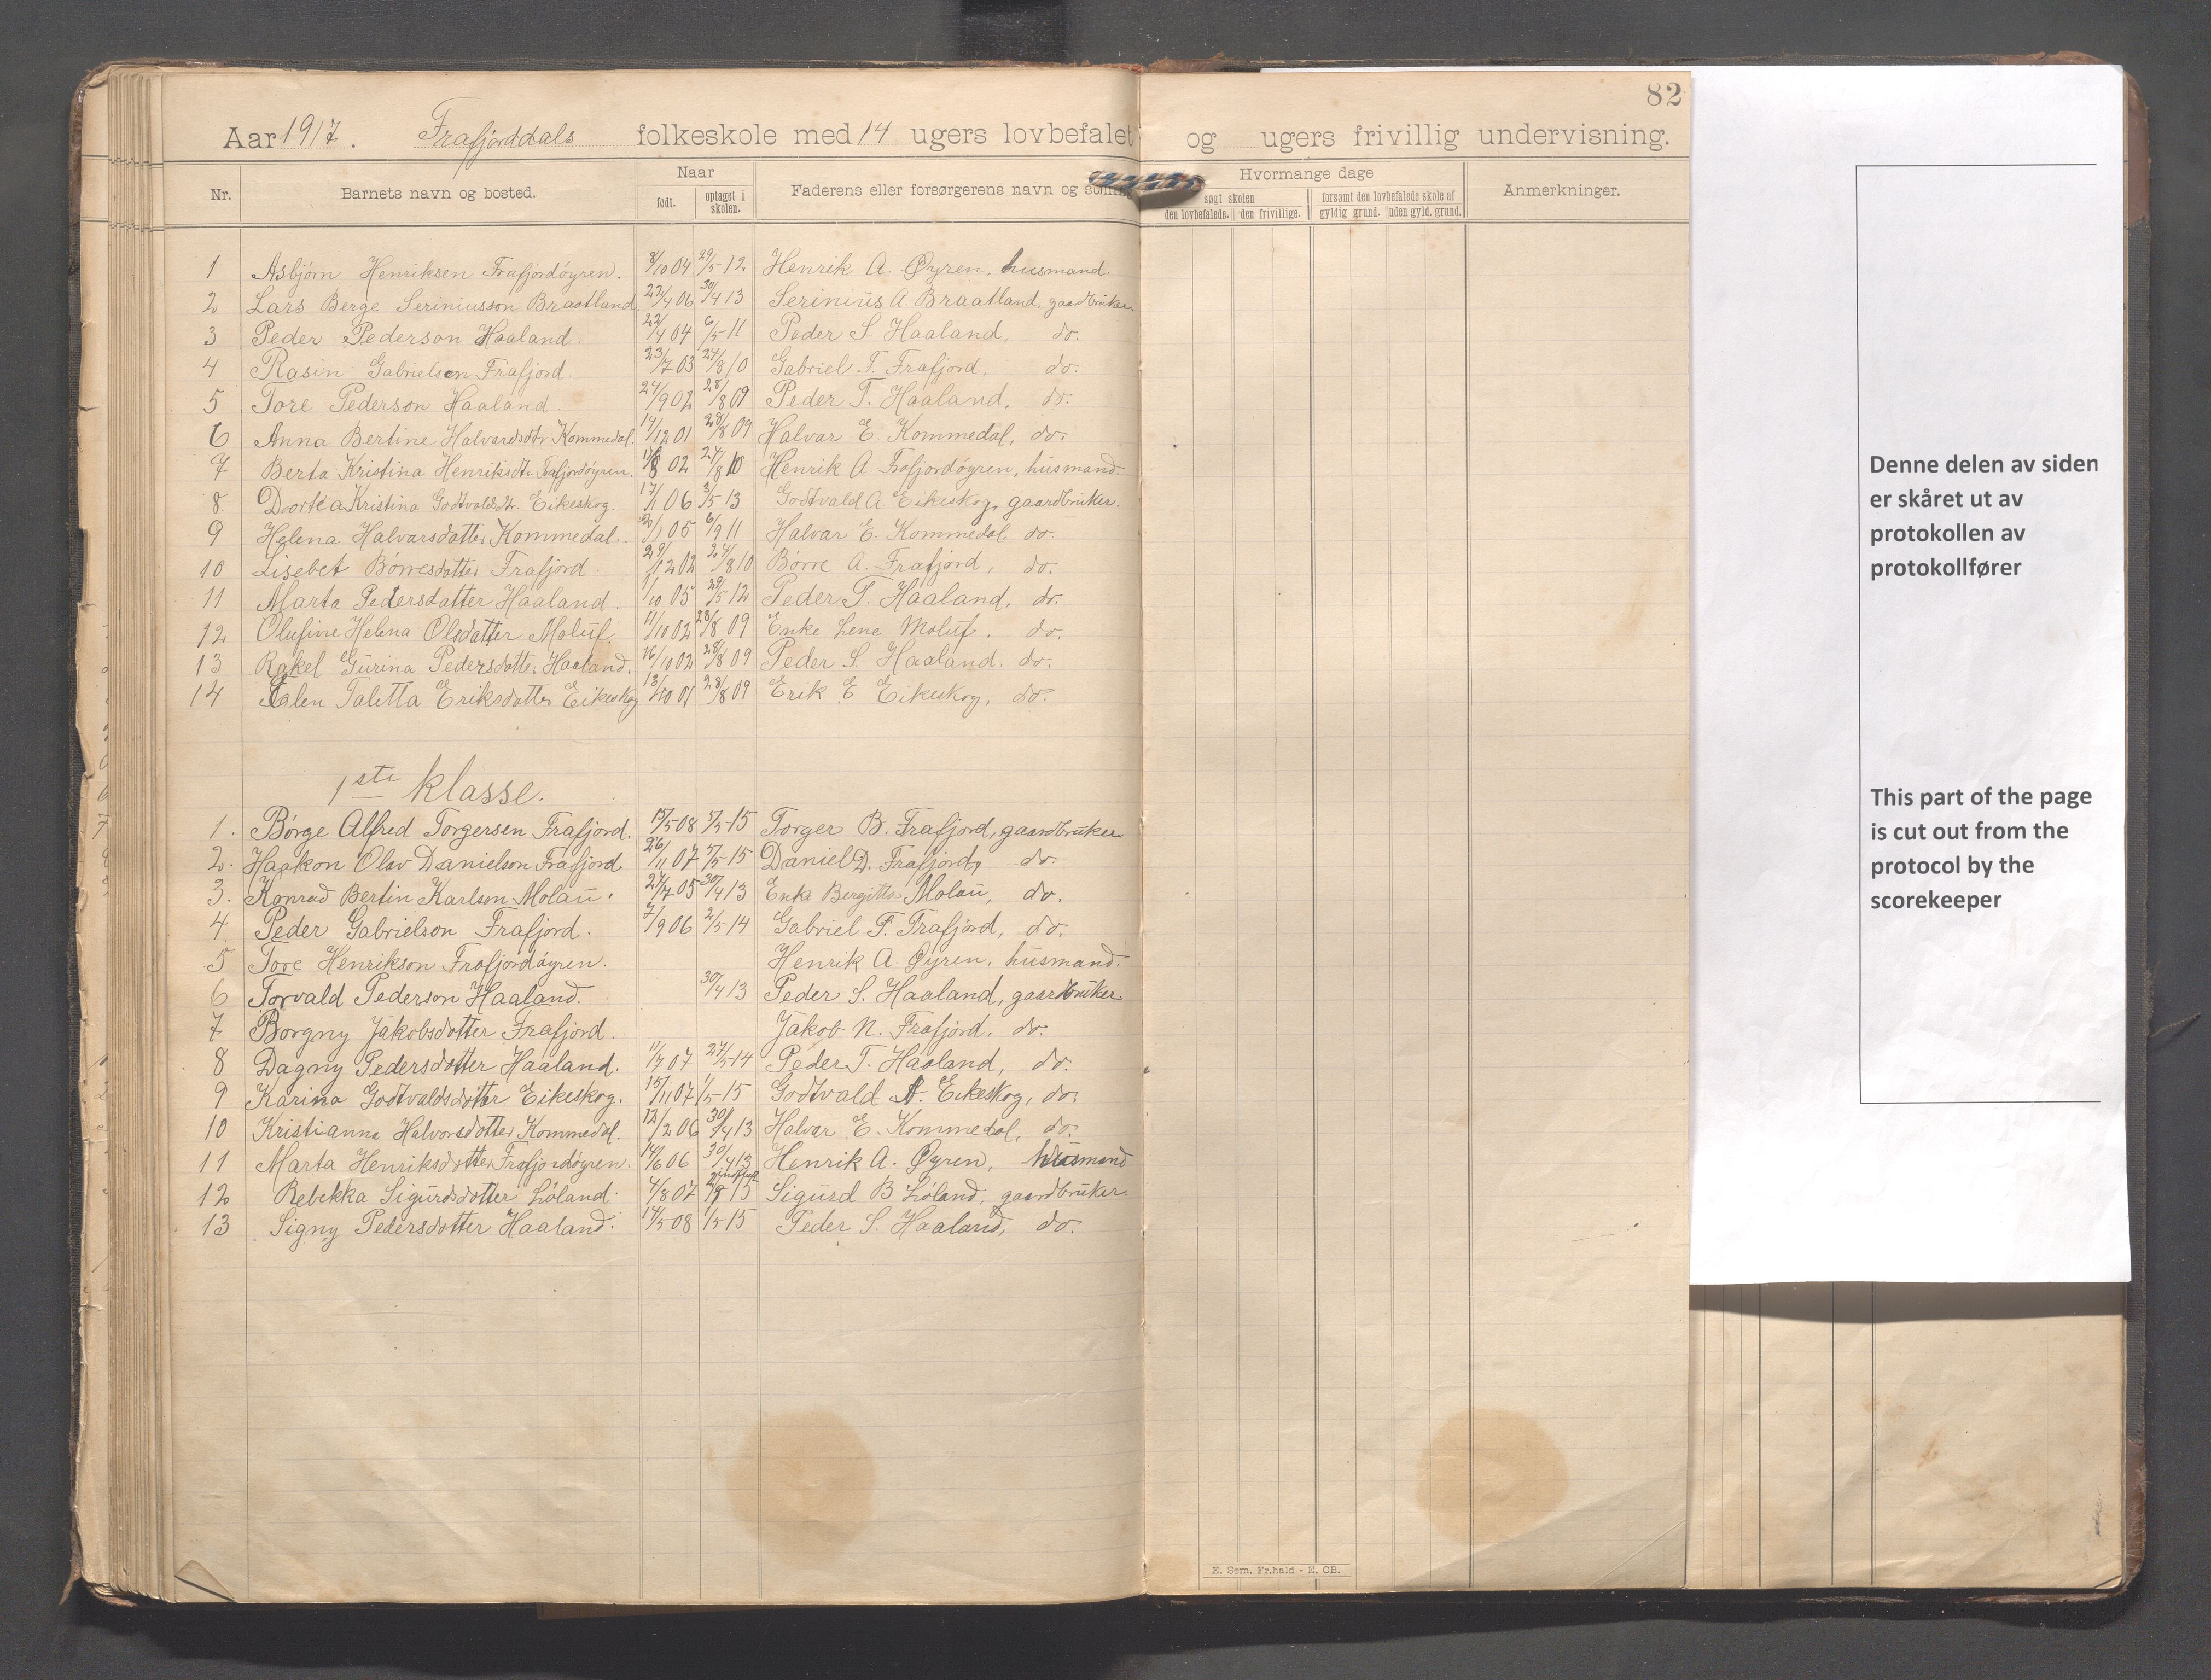 82
Aar 1917. Frafjorddals folkeskole med 14 ugers lovbefalet og ugers frivillig undervisning.
Nr. Barnets navn og bosted. Naar født. optaget i skolen. Faderens eller forsørgerens navn og Hvormange dage søgt skolen den lovbefalede. den frivillige. forsømt den lovbefalede skole af gyldig grund. uden gyld. grund. Anmerkninger.
1 Asbjørn Henriksen Frafjordøyren. 8/10 04 29/5 12 Henrik A. Øyren, husmand.
2 Lars Berge Seriniusson Braatland 22/4 06 30/4 13 Serinius A. Braatland, gaardbruker.
3 Peder Pederson Haaland. 22/4 04 6/5 11 Peder S. Haaland, do.
4 Rasin Gabrielson Frafjord. 23/7 03 24/8 10 Gabriel T. Frafjord, do.
5 Tore Pederson Haaland 24/9 02 28/8 09 Peder T. Haaland, do.
6 Anna Bertine Halvardsdtr Kommedal. 14/12 01 28/8 09 Halvar E. Kommedal, do.
7 Berta Kristina Henriksdt. Frafjordøyren. 02 24/8 10 Henrik A. Frafjordøyren, husmand.
8. Dortea Kristina Godtvaldsdt. Eikeskog. 17/1 06 5 13 Godtvald A. Eikeskog, gaardbruker.
9 Helena Halvarsdatter Kommedal. 05 6/9 11 Halvar E. Kommedal, do.
10 Lisebet Børresdatter Frafjord. 29/12 02 24/8 10 Børre A. Frafjord, do.
11 Marta Pedersdatter Haaland. 1/10 05 29/5 12 Peder T. Haaland, do.
12 Olufine Helena Olsdatter Moluf. 11/10 02 28/8 09 Enke Lene Moluf. do.
13 Rakel Gurina Pedersdatter Haaland. 16/10 02 28/8 09 Peder S. Haaland. do.
14 Talen Taletta Eriksdatter Eikeskog 13/10 01 28/8 09 Erik E Eikeskog, do.
1ste klasse.
1. Børge Alfred Torgersen Frafjord. 5 08 15 Torger B. Frafjord, gaardbruker
2. Haakon Olav Danielson Frafjord 26/11 07 15 Daniel D. Frafjord, do.
3. Konrad Bertin Karlson Molau. 05 30/4 13 Enke Bergitta Molau, do.
4 Peder Gabrielson Frafjord. 7/9 06 2/5 14 Gabriel T. Frafjord, do.
5 Tore Henrikson Frafjordøyren. Henrik A. Øyren, husmand.
6 Torvald Pederson Haaland. 30/4 13 Peder S. Haaland, gaardbruker
7 Borgny Jakobsdotter Frafjord. Jakob N. Frafjord, do.
8 Dagny Pedersdotter Haaland. 11/7 07 27/5 14 Peder T. Haaland, do.
9 Karina Godtvaldsdotter Eikeskog. 15/11 07 1/5 15 Godtvald A. Eikeskog, do.
10 Kristianna Halvorsdotter Kommedal. 12/2 06 30/4 13 Halvar E. Kommedal, do.
11 Marta Henriksdotter Frafjordøyren. 14/6 06 30/4 13 Henrik A. Øyren, husmand
12 Rebekka Sigurdsdotter Løland. 4/8 07 indflyt 15 Sigurd B Løland, gaardbruker.
13 Signy Pedersdotter Haaland. 14/5 08 1/5 15 Peder S. Haaland, do.
E. Sem, Fr.hald - E. CB.
Denne delen av siden
er skåret ut av
protokollen av
protokollfører
This part of the page
is cut out from the
protocol by the
scorekeeper